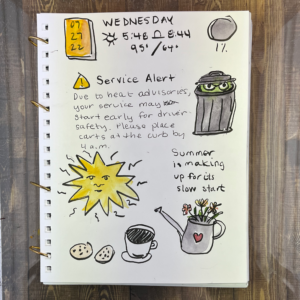 07
27
22
WEDNESDAY
5:48 8:44
95°/64°
1%
Service Alert
Due to heat advisories,
your service may
start early for driver
safety. Please place
carts at the curb by
4 a.m.
Summer
is making
up for its
slow start